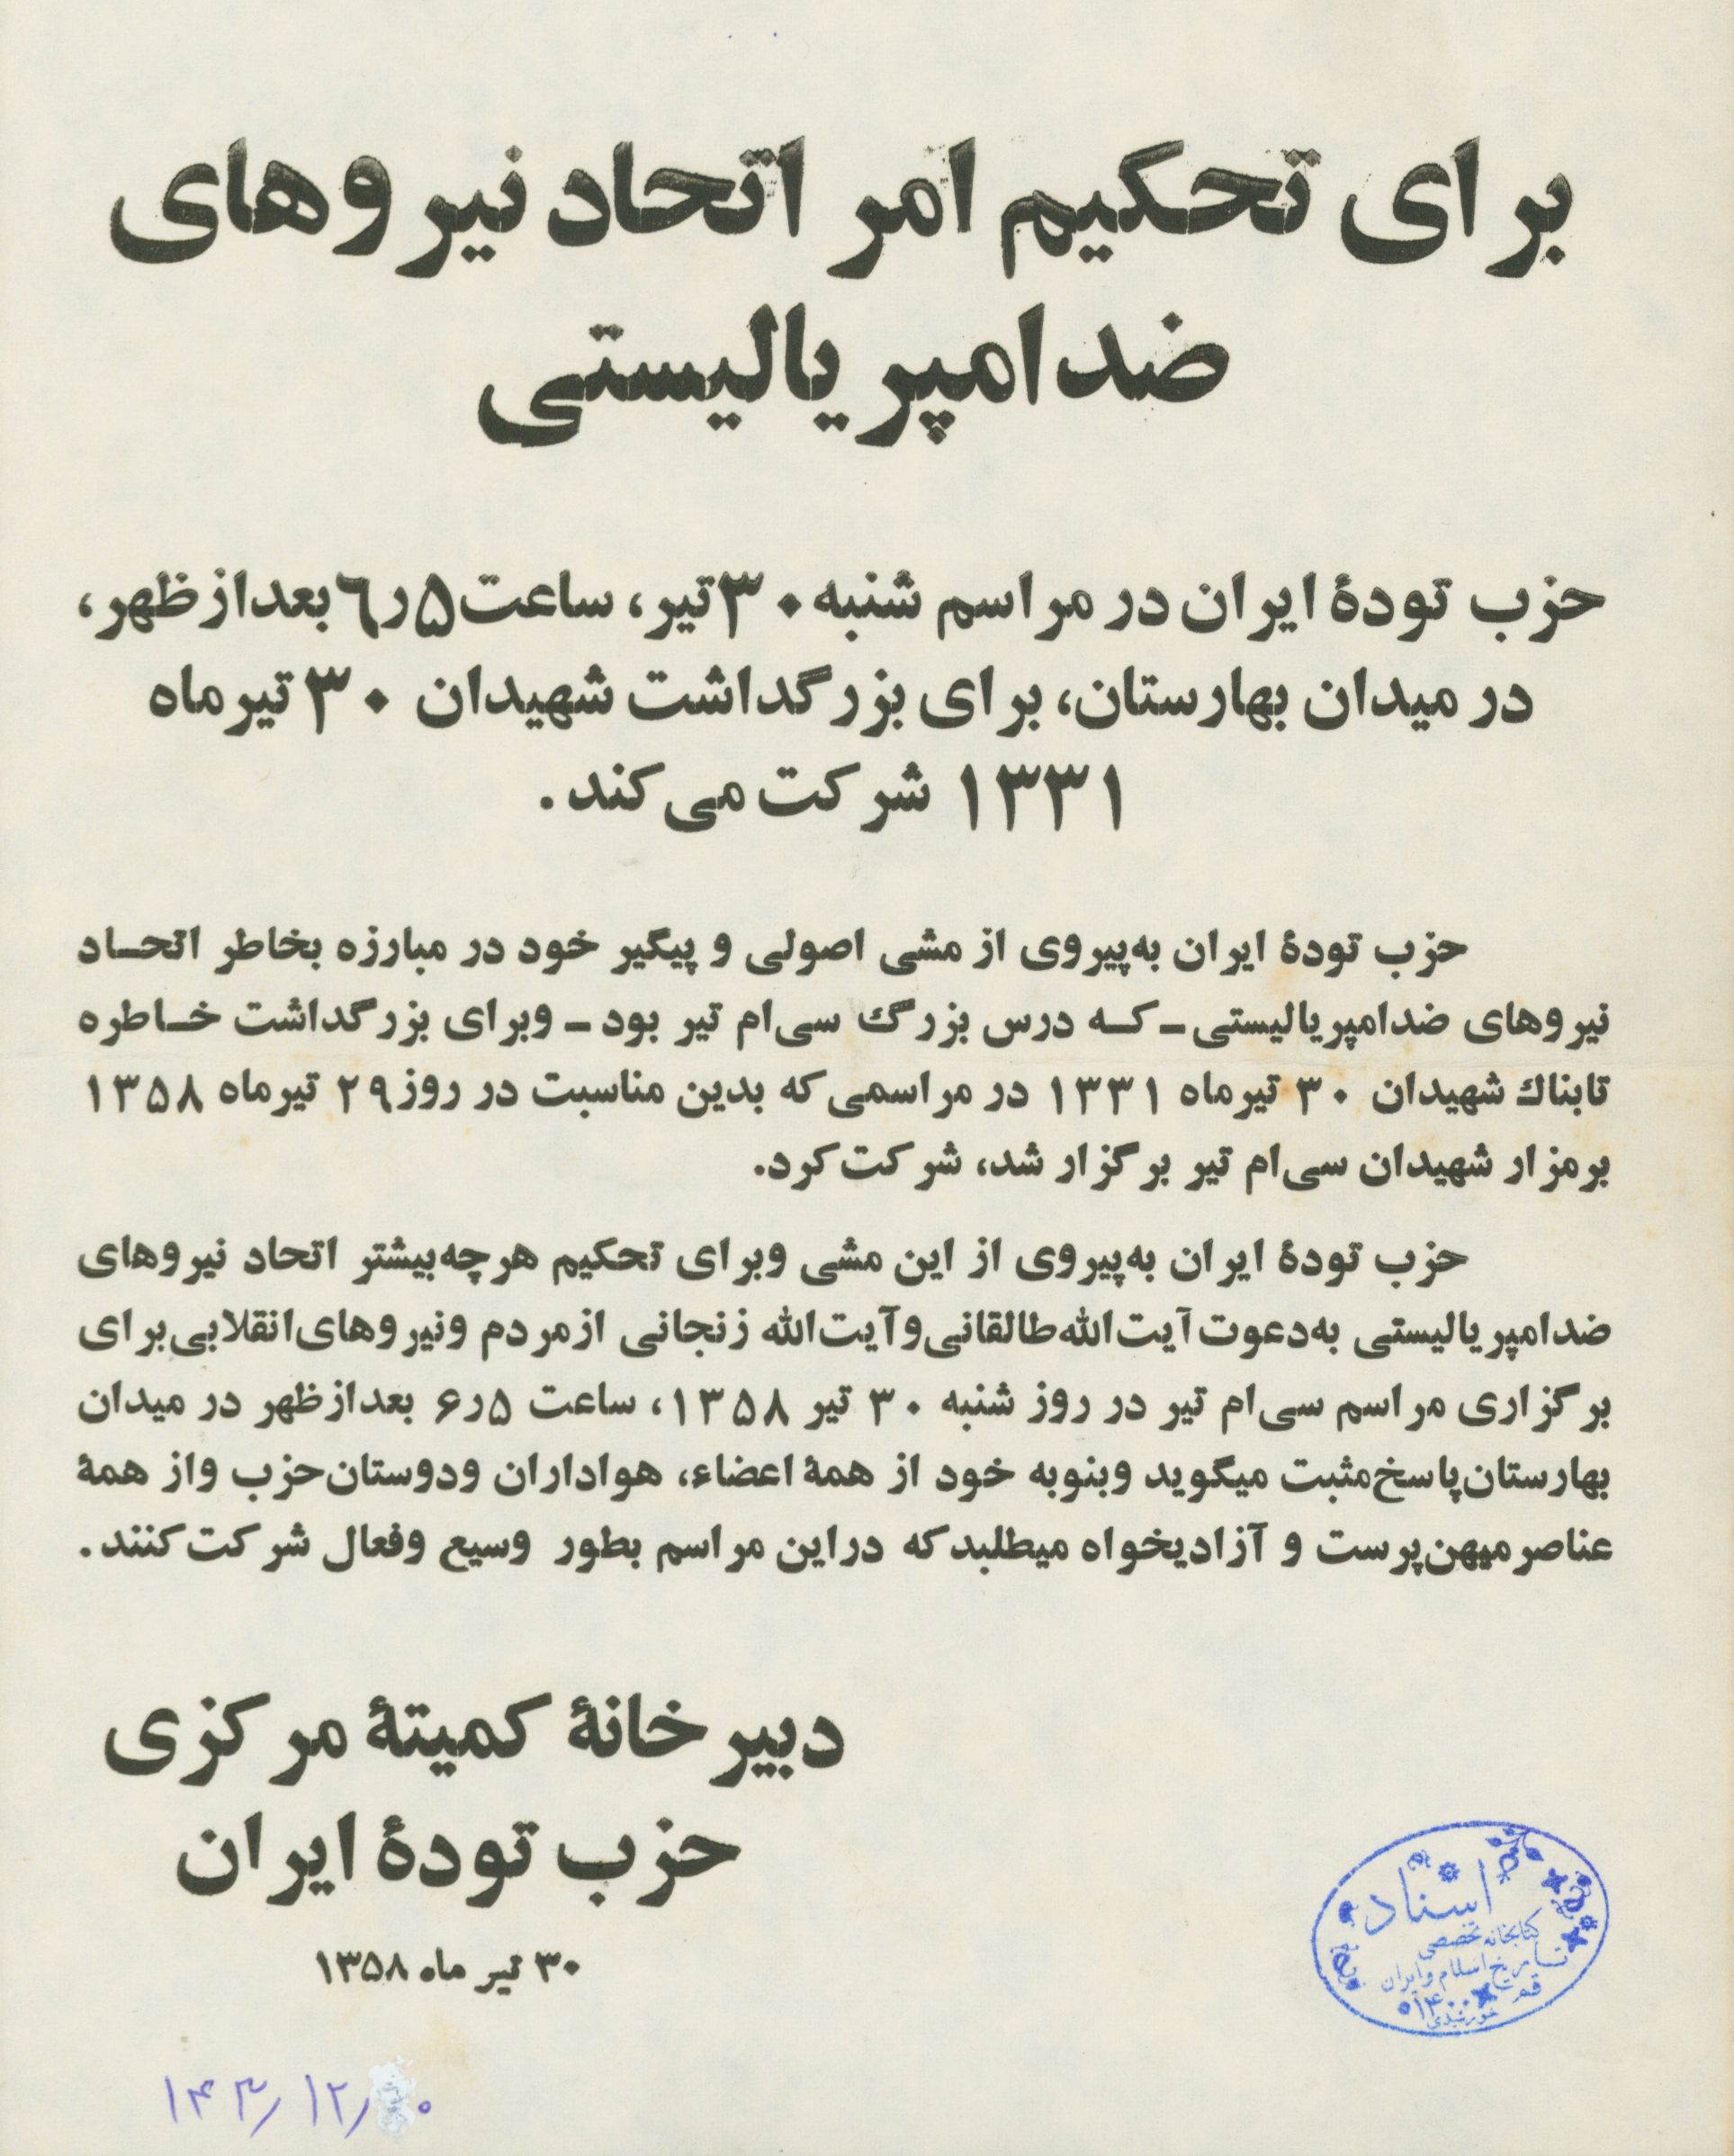 برای تحکیم امر اتحاد نیروهای
ضدامپریالیستی
حزب تودهٔ ایران در مراسم شنبه ۳۰ تیر، ساعت ۵ر۶ بعدازظهر،
در میدان بهارستان، برای بزرگداشت شهیدان ۳۰ تیرماه
۱۳۳۱ شرکت می‌کند.
حزب تودهٔ ایران به‌پیروی از مشی اصولی و پیگیر خود در مبارزه بخاطر اتحـاد
نیروهای ضدامپریالیستی ـ کـه درس بزرگ سی‌ام تیر بود ـ وبرای بزرگداشت خـاطره
تابناك شهیدان ۳۰ تیرماه ۱۳۳۱ در مراسمی که بدین مناسبت در روز ۲۹ تیرماه ۱۳۵۸
برمزار شهیدان سی‌ام تیر برگزار شد، شرکت کرد.
حزب تودهٔ ایران به‌پیروی از این مشی وبرای تحکیم هرچه‌بیشتر اتحاد نیروهای
ضدامپریالیستی به‌دعوت آیت‌الله طالقانی وآیت‌الله زنجانی ازمردم ونیروهای انقلابی برای
برگزاری مراسم سی‌ام تیر در روز شنبه ۳۰ تیر ۱۳۵۸، ساعت ۵ر۶ بعدازظهر در میدان
بهارستان پاسخ مثبت میگوید وبنوبه خود از همهٔ اعضاء، هواداران ودوستان حزب واز همهٔ
عناصر میهن‌پرست و آزادیخواه میطلبد که دراین مراسم بطور وسیع وفعال شرکت کنند.
دبیرخانهٔ کمیتهٔ مرکزی
حزب تودهٔ ایران
۳۰ تیر ماه ۱۳۵۸
اسناد
کتابخانه تخصصی
تاریخ اسلام و ایران
قم